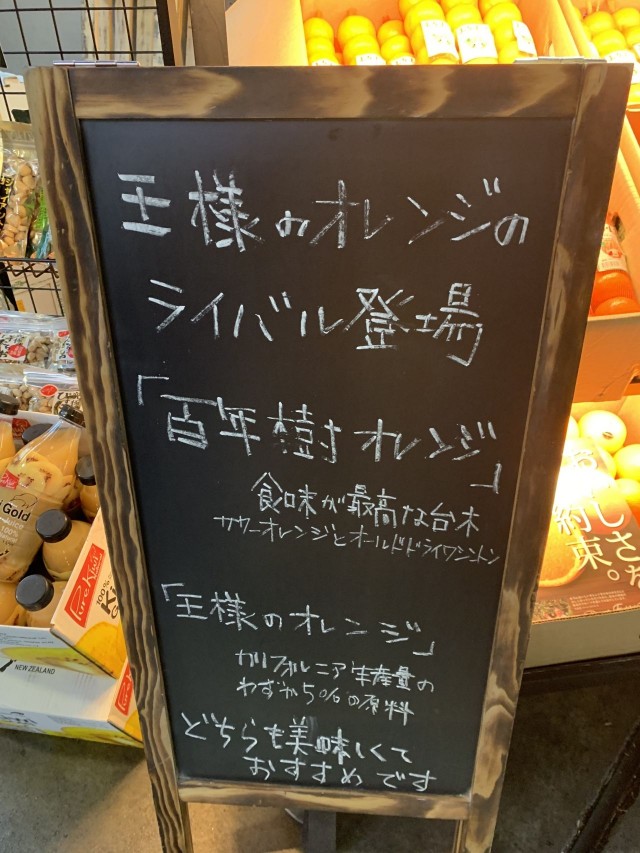 王様のオレンジの
ライバル登場
「百年樹オレンジ」
食味が最高な台木
サワーオレンジとオールドドライワシントン
「王様のオレンジ」
カリフォルニア生産量の
わずか5%の原料
どちらも美味しくて
おすすめです
Gold
Juice
100%
PureKiwi
100%
NEW ZEALAND
約束。